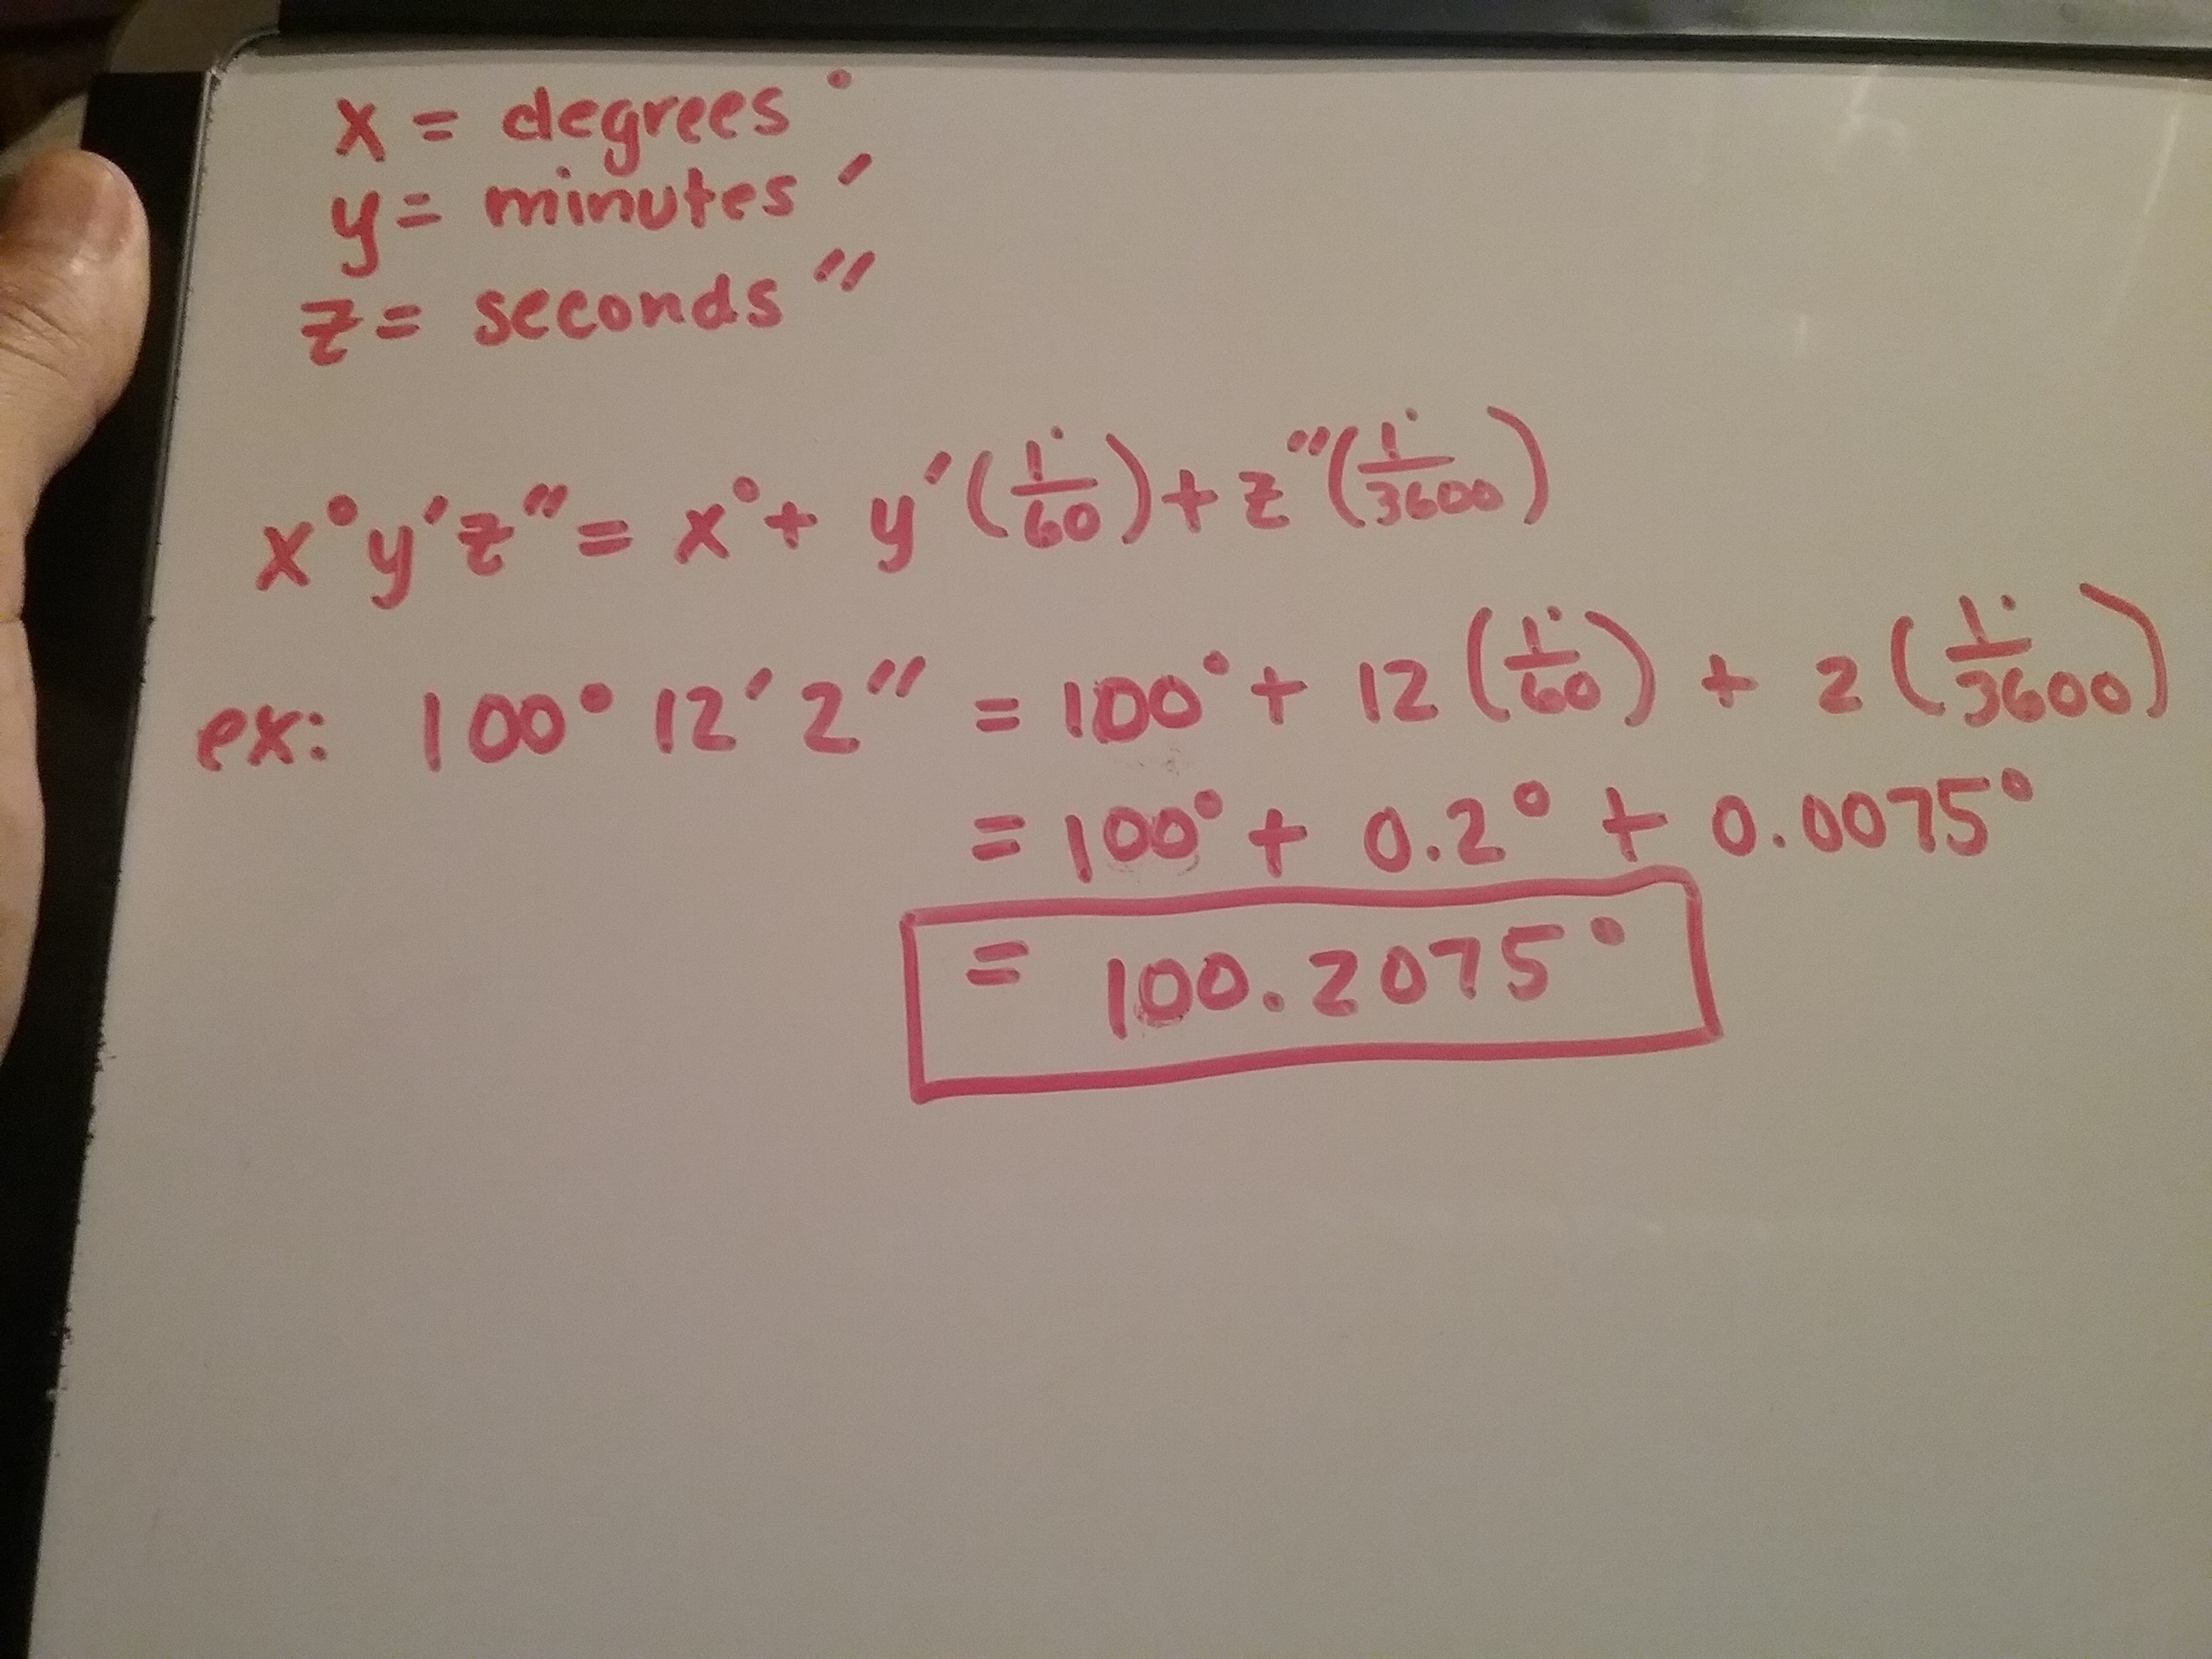 x = degrees °
y = minutes ′
z = seconds ″
x° y′ z″ = x° + y′ (1°/60) + z″ (1°/3600)
ex: 100° 12′ 2″ = 100° + 12 (1°/60) + 2 (1°/3600)
= 100° + 0.2° + 0.0075°
= 100.2075°